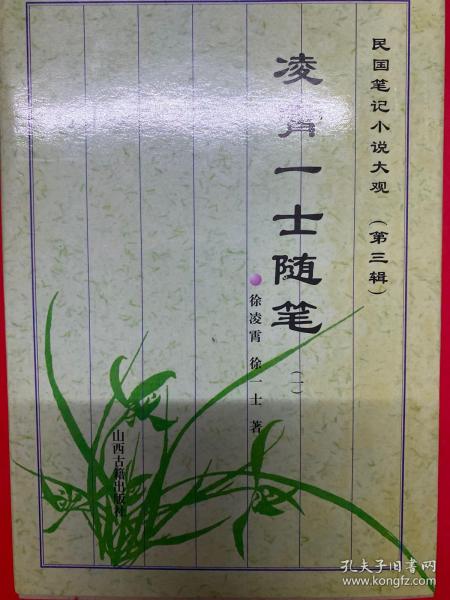 民国笔记小说大观（第三辑）
凌霄一士随笔（一）
徐凌霄 徐一士 著
山西古籍出版社
孔夫子旧书网
www.kongfz.com